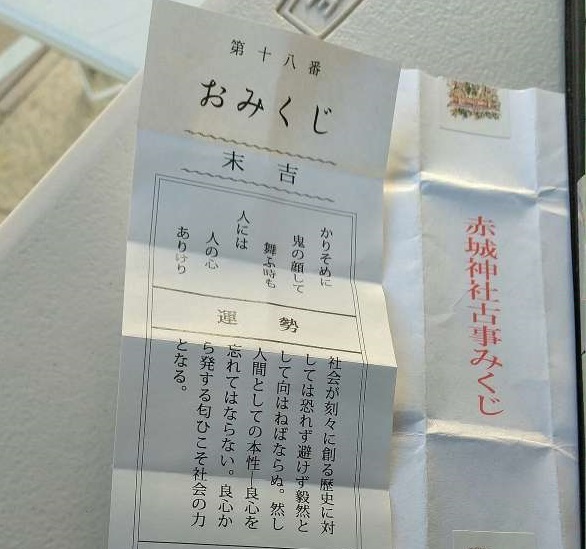 第十八番
おみくじ
末吉
かりそめに
鬼の顔して
舞ふ時も
人には
人の心
ありけり
運勢
社会が刻々に創る歴史に対
しては恐れず避けず毅然と
して向はねばならぬ。然し
人間としての本性―良心を
忘れてはならない。良心か
ら発する匂ひこそ社会の力
となる。
赤城神社古事みくじ